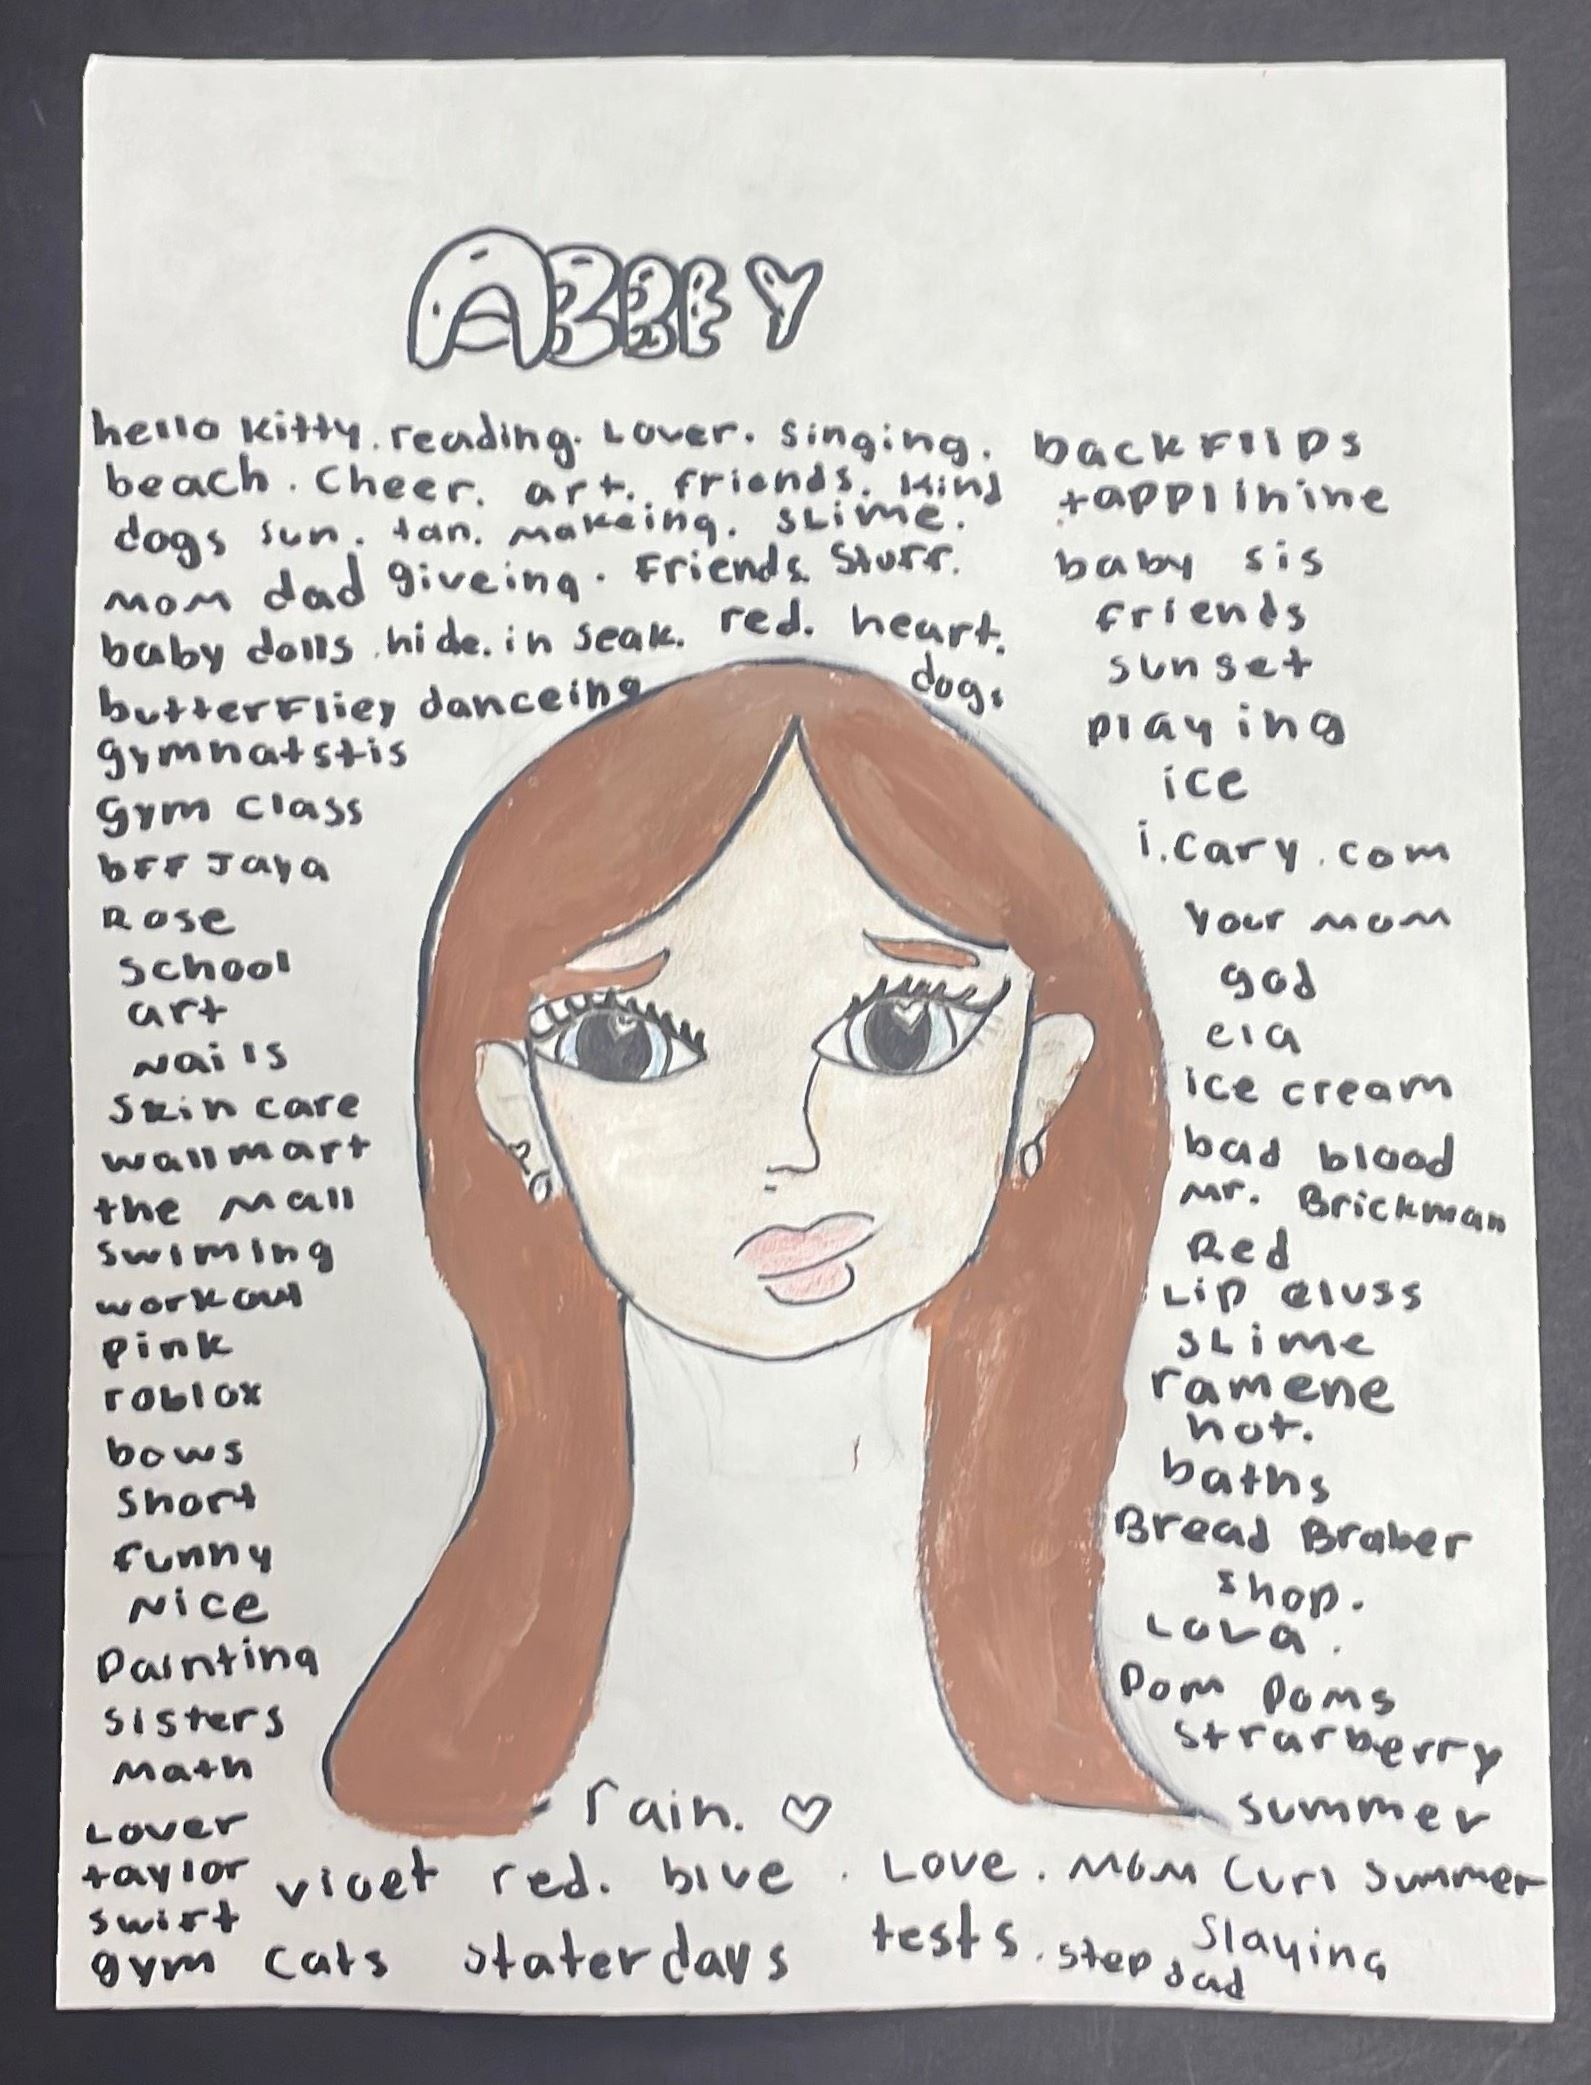 ABBEY
hello kitty. reading. Lover. singing.
beach. Cheer. art. friends. kind
dogs sun. tan. makeing. sLime.
mom dad giveing. Friends. Sturr.
baby dolls. hide. in seak. red. heart.
butterFliey danceing dogs
gymnatstis
gym class
bff Jaya
Rose
school
art
Nails
Skin care
wallmart
the mall
swiming
workout
pink
roblox
bows
short
funny
Nice
Painting
sisters
Math
Lover
taylor
swift
gym cats staterdays
backflips
tapplinine
baby sis
friends
sunset
playing
ice
i.cary.com
your mom
god
ela
ice cream
bad blood
Mr. Brickman
Red
Lip gluss
sLime
ramene
hot.
baths
Bread Braber
shop.
Lova.
Pom Poms
strarberry
summer
rain. ♡
vioet red. blue. Love. Mom Curl Summer
tests. step dad Slaying